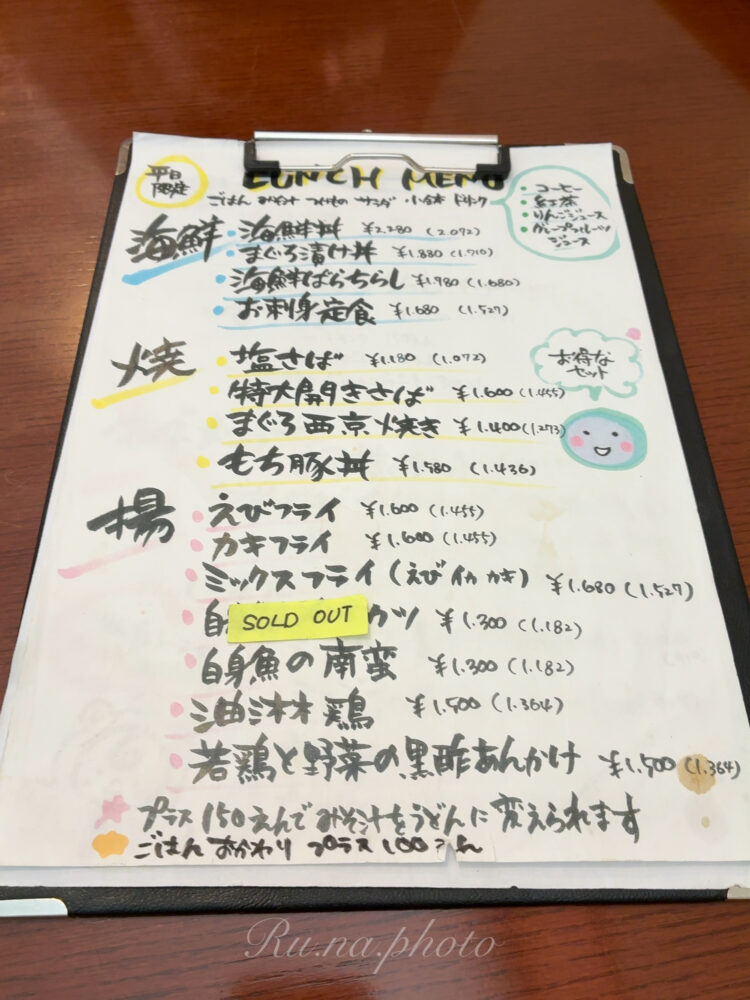 平日
限定
LUNCH MENU
ごはん みそ汁 つけもの サラダ 小鉢 ドリンク
・コーヒー
・紅茶
・りんごジュース
・グレープフルーツ
ジュース
海鮮
・海鮮丼 ¥2.280 (2.072)
・まぐろ漬け丼 ¥1.880 (1.710)
・海鮮ばらちらし ¥1.980 (1.680)
・お刺身定食 ¥1.680 (1.527)
お得な
セット
焼
・塩さば ¥1.180 (1.072)
・特大開きさば ¥1.600 (1.455)
・まぐろ西京焼き ¥1.400 (1.273)
・もち豚丼 ¥1.580 (1.436)
揚
・えびフライ ¥1.600 (1.455)
・カキフライ ¥1.600 (1.455)
・ミックスフライ (えび イカ カキ) ¥1.680 (1.527)
・自 SOLD OUT カツ ¥1.300 (1.182)
・白身魚の南蛮 ¥1.300 (1.182)
・油淋鶏 ¥1.500 (1.364)
・若鶏と野菜の黒酢あんかけ ¥1.500 (1.364)
プラス150えんでみそ汁をうどんに変えられます
ごはん おかわり プラス100えん
Ru.na.photo